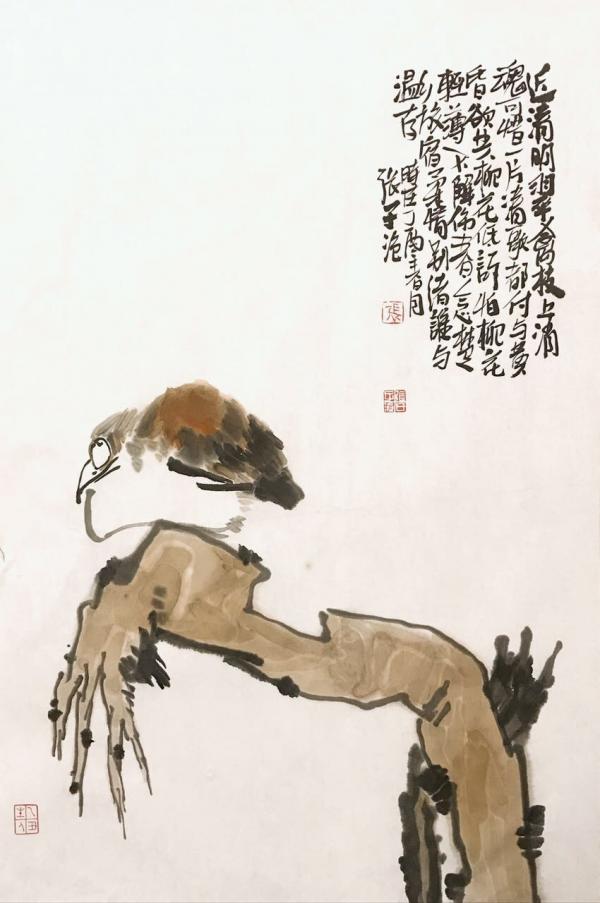 近清明翠禽枝上消
魂可惜一片清歌都付与黄
昏欲共柳花低訴怕柳花
輕薄不解傷春念楚
乡旅宿柔情别绪誰与
温存
時在丁酉春月
張子